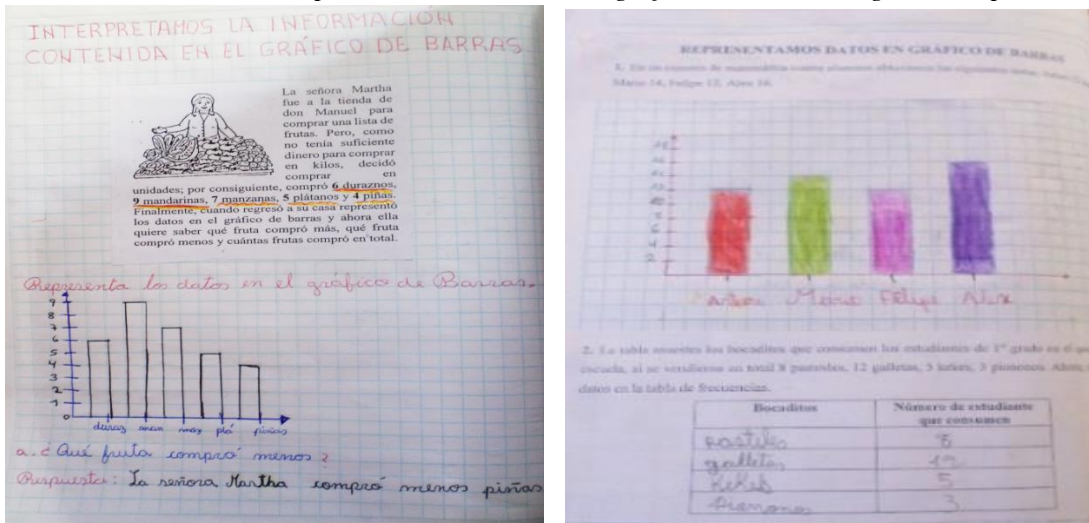 INTERPRETAMOS LA INFORMACIÓN
CONTENIDA EN EL GRÁFICO DE BARRAS
La señora Martha
fue a la tienda de
don Manuel para
comprar una lista de
frutas. Pero, como
no tenía suficiente
dinero para comprar
en kilos, decidó
comprar en
unidades; por consiguiente, compró 6 duraznos,
9 mandarinas, 7 manzanas, 5 plátanos y 4 piñas.
Finalmente, cuando regresó a su casa representó
los datos en el gráfico de barras y ahora ella
quiere saber qué fruta compró más, qué fruta
compró menos y cuántas frutas compró en total.
Representa los datos en el gráfico de Barras.
9
8
7
6
5
4
3
2
1
0
duraz man maz plá piñas
a. ¿Qué fruta compró menos?
Respuesta: La señora Martha compró menos piñas
REPRESENTAMOS DATOS EN GRÁFICO DE BARRAS
1. En un examen de matemática cuatro alumnos obtuvieron las siguientes notas:
Mario 14, Felipe 12, Alex 16.
4
2
Mario Felipe Alex
2. La tabla muestra los bocaditos que consumen los estudiantes de 1° grado en el
escuela, si se vendieron en total 8 pasteles, 12 galletas, 5 kekes, 3 pionono.
datos en la tabla de frecuencias.
Bocaditos Número de estudiante
que consumen
pasteles 8
galletas 12
KeKes 5
3